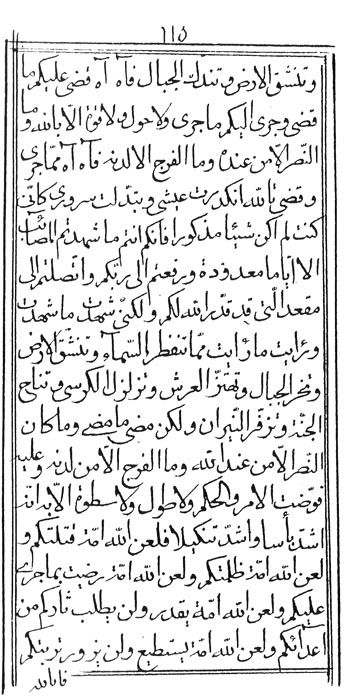 ١١٥
وتنشق الارض وتندك الجبال فآه آه قضى عليكم ما
قضى وجرى اليكم ما جرى ولا حول ولا قوة الا بالله و ما
النصر الا من عنده وما الفرج الا لديه فآه آه مما جرى
وقضى تالله انكدرت عيشى وتبدلت سرورى كانى
كنت لم اكن شيئا مذكورا فانكم انتم ما شهدتم المصائب
الا اياما معدودة ورفعتم الى ربكم واتصلتم الى
مقعد التى قد قدر الله لكم ولكنى شهدت ما شهدت
ورايت ما رايت مما تنفطر السماء وتنشق الارض
وتخر الجبال وتهتز العرش وتزلزل الكرسى وتناح
الجنة وتزفر النيران ولكن مضى ما مضى وما كان
النصر الا من عند الله وما الفرج الا من لديه وعليه
فوضت الامر والحكم ولا طول ولا سطوة الا به انه
اشد باسا واشد تنكيلا فلعن الله امة قتلتكم و
لعن الله امة ظلمتكم ولعن الله امة رضيت بما جرى
عليكم ولعن الله امة يقدر ولن يطلب ثاركم من
اعدائكم ولعن الله امة يستطيع ولن يزور تربتكم
فانا لله